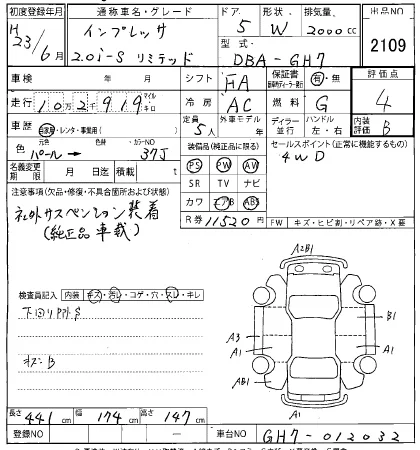 初度登録年月 通称車名・グレード ドア 形状 排気量 出品NO
H23/6月 インプレッサ 5 W 2000cc 2109
2.0i-S リミテッド 型式 DBA-GH7
車検 年 月 シフト FA 保証書 有・無 評価点
走行 102919 マイル キロ 冷房 AC 燃料 G 4
車歴 自家用・レンタ・事業用( ) 定員 5人 外車モデル年 ディーラー 並行 ハンドル 左・右 内装評価 B
色 元色 パール→ 色替 カラーNO 37J 装備品(純正品に限る) セールスポイント(正常に機能するもの)
名義変更期限 月 日 迄 月 PS PW AW 4WD
注意事項(欠品・修復・不具合箇所および状態) SR TV ナビ
社外サスペンション装着 カワ エアB ABS
(純正品車載) R券 11520円 FW キズ・ヒビ割・リペア跡・X要
A2B1
検査員記入 内装 キズ・汚レ・コゲ・穴・スレ・キレ
B1
A3
A1 A1
AB1
A1
長さ 441cm 幅 174cm 高さ 147cm
登録NO 車台NO GH7-012032